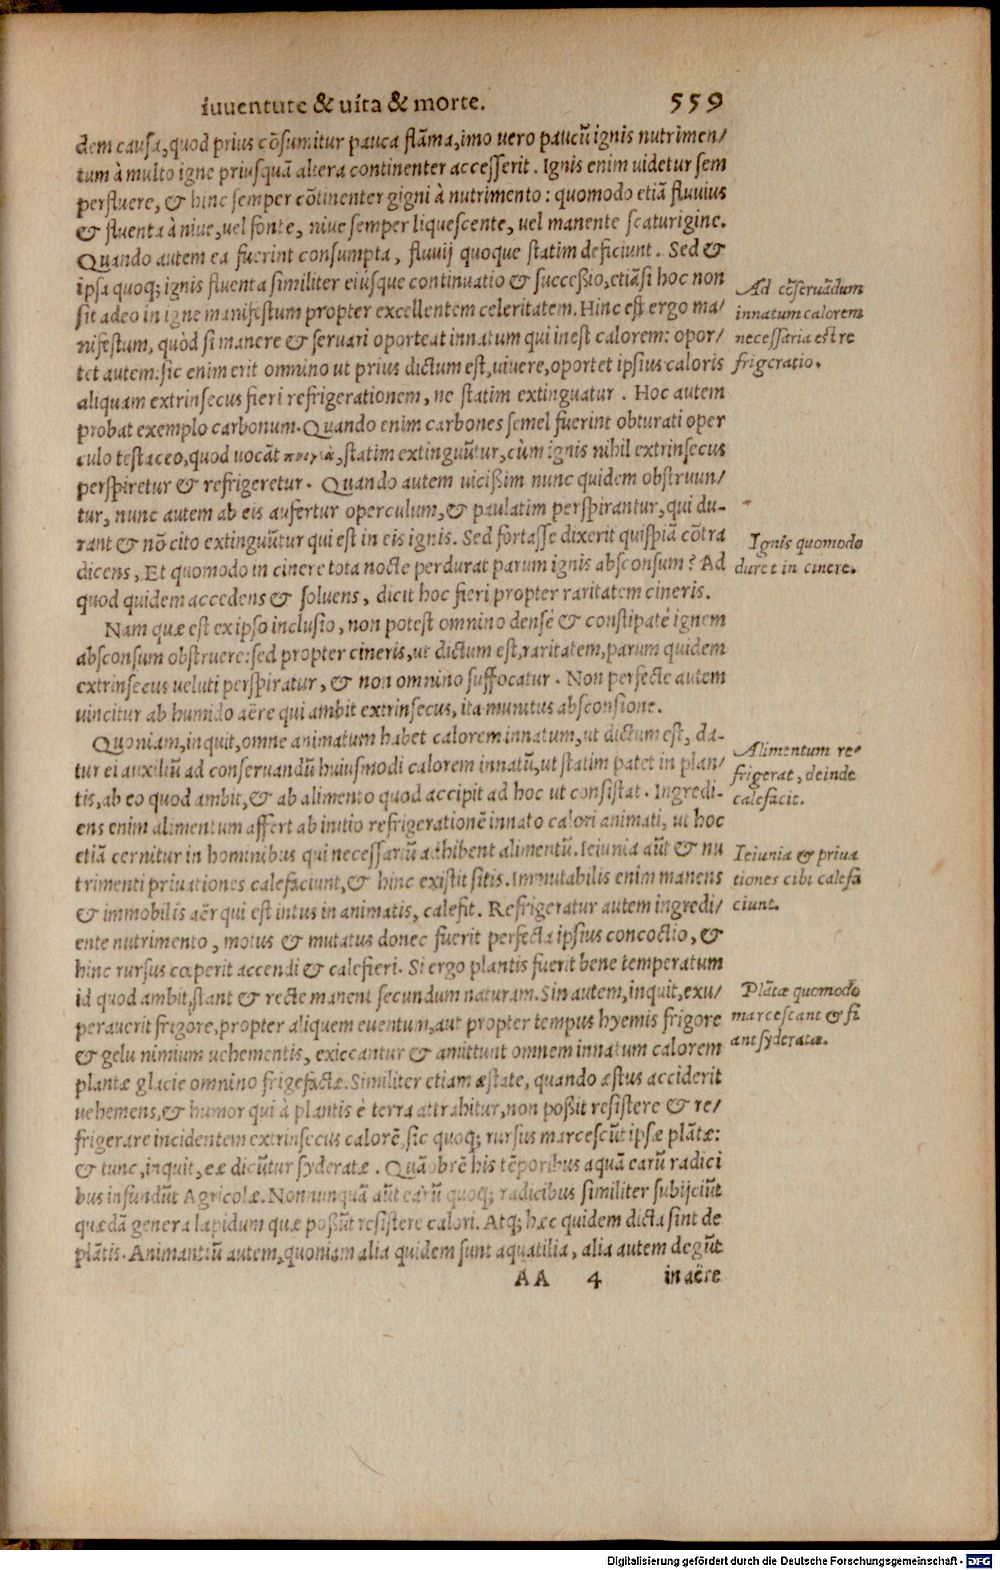 iuuentute & uita & morte. 559
dem causa, quod prius cõsumitur pauca flãma, imo uero paucũ ignis nutrimen/
tum à multo igne priusquã altera continenter accesserit. Ignis enim uidetur sem
perfluere, & hinc semper cõtinenter gigni à nutrimento: quomodo etiã fluuius
& fluenta à niue, uel fonte, niue semper liquescente, uel manente scaturigine.
Quando autem ea fuerint consumpta, fluuij quoque statim deficiunt. Sed &
ipsa quoq; ignis fluenta similiter eiúsque continuatio & successio, etiãsi hoc non
sit adeo in igne manifestum propter excellentem celeritatem. Hinc est ergo ma/
nifestum, quòd si manere & seruari oporteat innatum qui inest calorem: opor/
tet autem: sic enim erit omnino ut prius dictum est, uiuere, oportet ipsius caloris
aliquam extrinsecus fieri refrigerationem, ne statim extinguatur. Hoc autem
probat exemplo carbonum. Quando enim carbones semel fuerint obturati oper
culo testaceo, quod uocãt statim extinguũtur, cùm ignis nihil extrinsecus
perspiretur & refrigeretur. Quando autem uicißim nunc quidem obstruun/
tur, nunc autem ab eis aufertur operculum, & paulatim perspirantur, qui du-
rant & nõ cito extinguũtur qui est in eis ignis. Sed fortasse dixerit quispiã cõtra
dicens, Et quomodo in cinere tota nocte perdurat parum ignis absconsum? Ad
quod quidem accedens & soluens, dicit hoc fieri propter raritatem cineris.
Nam quæ est ex ipso inclusio, non potest omnino densè & constipatè ignem
absconsum obstruere: sed propter cineris, ut dictum est, raritatem, parum quidem
extrinsecus ueluti perspiratur, & non omnino suffocatur. Non perfecte autem
uincitur ab humido aëre qui ambit extrinsecus, ita munitus absconsione.
Quoniam, inquit, omne animatum habet calorem innatum, ut dictum est, da-
tur ei auxiliũ ad conseruandũ huiusmodi calorem innatũ, ut statim patet in plan/
tis, ab eo quod ambit, & ab alimento quod accipit ad hoc ut consistat. Ingredi-
ens enim alimentum affert ab initio refrigerationẽ innato calori animati, ut hoc
etiã cernitur in hominibus qui necessariũ adhibent alimentũ. Ieiunia aũt & nu
trimenti priuationes calefaciunt, & hinc existit sitis. Immutabilis enim manens
& immobilis aër qui est intus in animatis, calefit. Refrigeratur autem ingredi/
ente nutrimento, motus & mutatus donec fuerit perfecta ipsius concoctio, &
hinc rursus cœperit accendi & calefieri. Si ergo plantis fuerit bene temperatum
id quod ambit, stant & recte manent secundum naturam. Sin autem, inquit, exu/
perauerit frigore, propter aliquem euentum, aut propter tempus hyemis frigore
& gelu nimium uehementis, exiccantur & amittunt omnem innatum calorem
plantæ glacie omnino frigefactæ. Similiter etiam æstate, quando æstus acciderit
uehemens, & humor qui à plantis è terra attrahitur, non poßit resistere & re/
frigerare incidentem extrinsecus calorẽ, sic quoq; rursus marcescũt ipsæ plãtæ:
& tunc, inquit, eæ dicũtur syderatæ. Quãobrẽ his tẽporibus aquã earũ radici
bus infundũt Agricolæ. Nonnunquã aũt earũ quoq; radicibus similiter subijciũt
quædã genera lapidum quæ poßũt resistere calori. Atq; hæc quidem dicta sint de
plãtis. Animantiũ autem, quoniam alia quidem sunt aquatilia, alia autem degũt
AA 4 in aëre
Ad cõseruãdum
innatum calorem
necessaria est re
frigeratio.
Ignis quomodo
duret in cinere.
Alimentum re-
frigerat, deinde
calefacit.
Ieiunia & priua
tiones cibi calefa
ciunt.
Plãtæ quomodo
marcescant & fi
ant syderatæ.
Digitalisierung gefördert durch die Deutsche Forschungsgemeinschaft - DFG